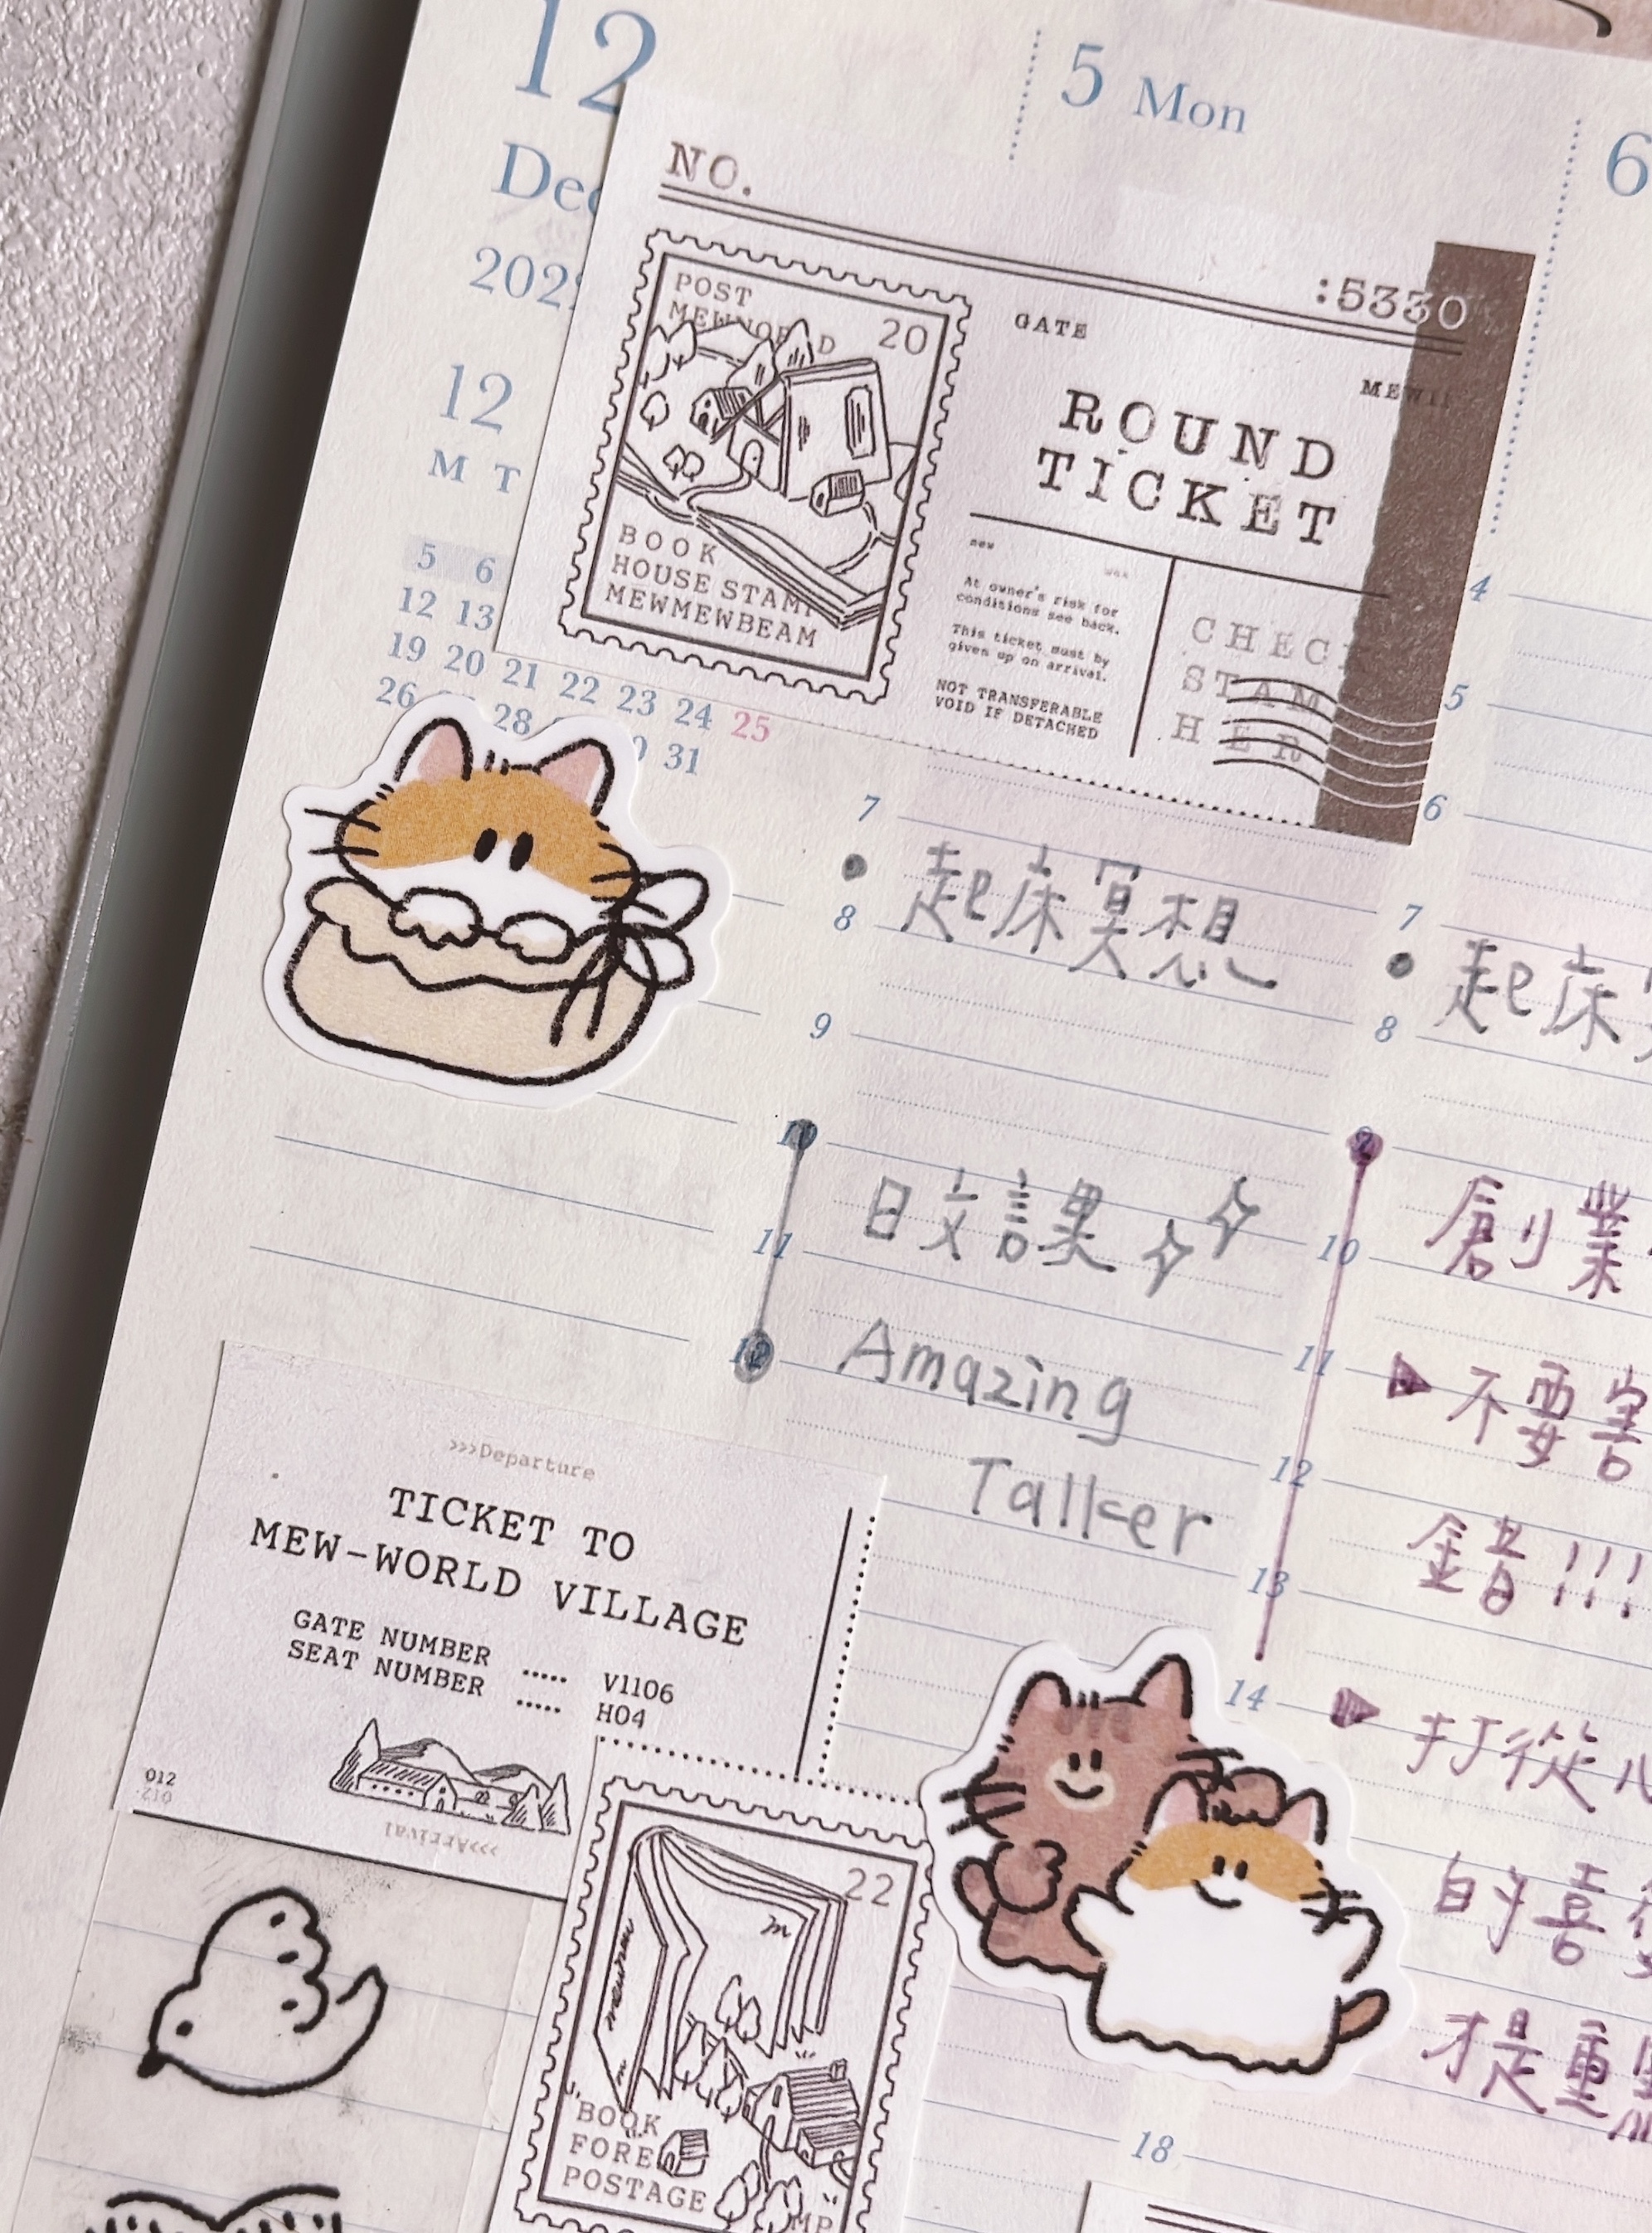 12
5 Mon
6
NO.
:5330
POST
20
GATE
ROUND
TICKET
BOOK
HOUSE STAMP
MEWMEWBEAM
At owner's risk for
conditions see back.
This ticket must by
given up on arrival.
NOT TRANSFERABLE
VOID IF DETACHED
12
M T
5 6
12 13
19 20 21 22 23 24 25
26 28 31
7
起床冥想
8
9
10
日文課
11
Amazing
12
Talker
4
5
6
7
起床
8
9
創業
10
11
不要害
12
錯!!!
13
14
打從心
的喜
才是重
18
>>>Departure
TICKET TO
MEW-WORLD VILLAGE
GATE NUMBER ..... V1106
SEAT NUMBER ..... H04
012
>>>Arrival
22
BOOK
FORE
POSTAGE